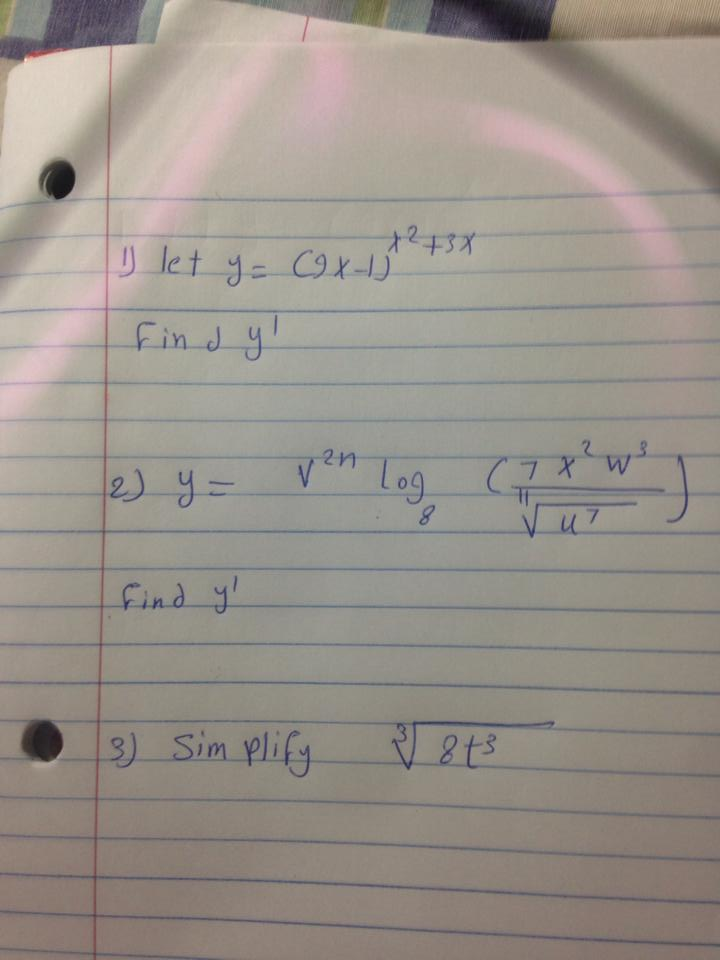 1) let y = (9x-1)^x²+3x
Find y'
2) y = v²ⁿ log₈ (7x²w³ / ¹¹√u⁷)
Find y'
3) Simplify ³√8t³